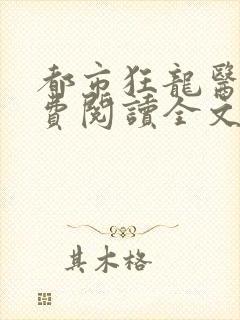 都市狂龍醫
費閱讀全文
其木格